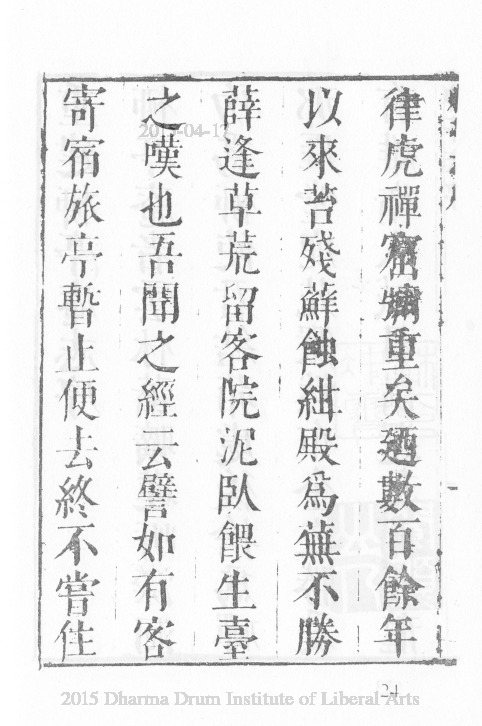 律虎禪窟重矣廼數百餘年
以來苔殘蘚蝕紺殿爲蕪不勝
薛逢草荒留客院泥臥餵生臺
之嘆也吾聞之經云譬如有客
寄宿旅亭暫止便去終不嘗住
24
2015 Dharma Drum Institute of Liberal Arts